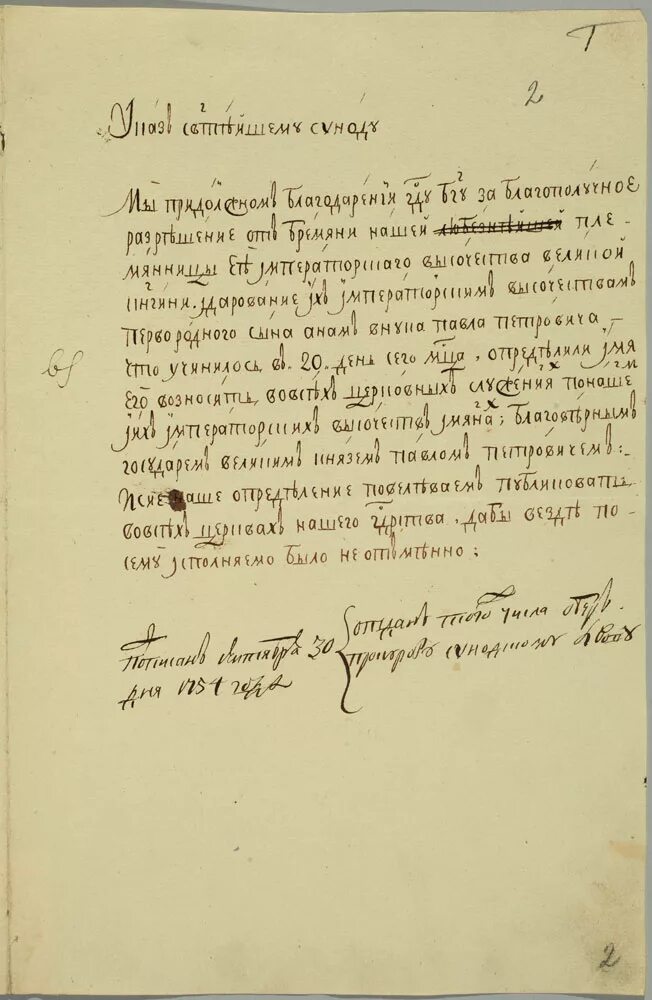 2
Указъ святѣйшему сѵноду
Мы придолжномъ благодарениі гдꙋ бгꙋ за благополучное
разрѣшение отъ бремяни нашей любезнѣйшей пле-
мянницы Ея імператорскаго высочества великой
кнгини. ідарование іхъ імператорскимъ высочествамъ
первородного сына анамъ внука павла петровича
что учинилось въ 20 день сего мца, опредѣлили імя
Его возносить вовсѣхъ церковныхъ служения понаше
іихъ імператорскихъ высочествъ імянахъ; благовѣрнымъ
государемъ великимъ княземъ павломъ петровичемъ:
Исие наше опредѣление повелѣваемъ публиковать
вовсѣхъ церквахъ нашего гдрства, дабы вездѣ по-
сему ісполняемо было неотъмѣнно:
Пописанъ сентября 30
дня 1754 года
отданъ того числа оберъ
прокурору сѵнодскому
2